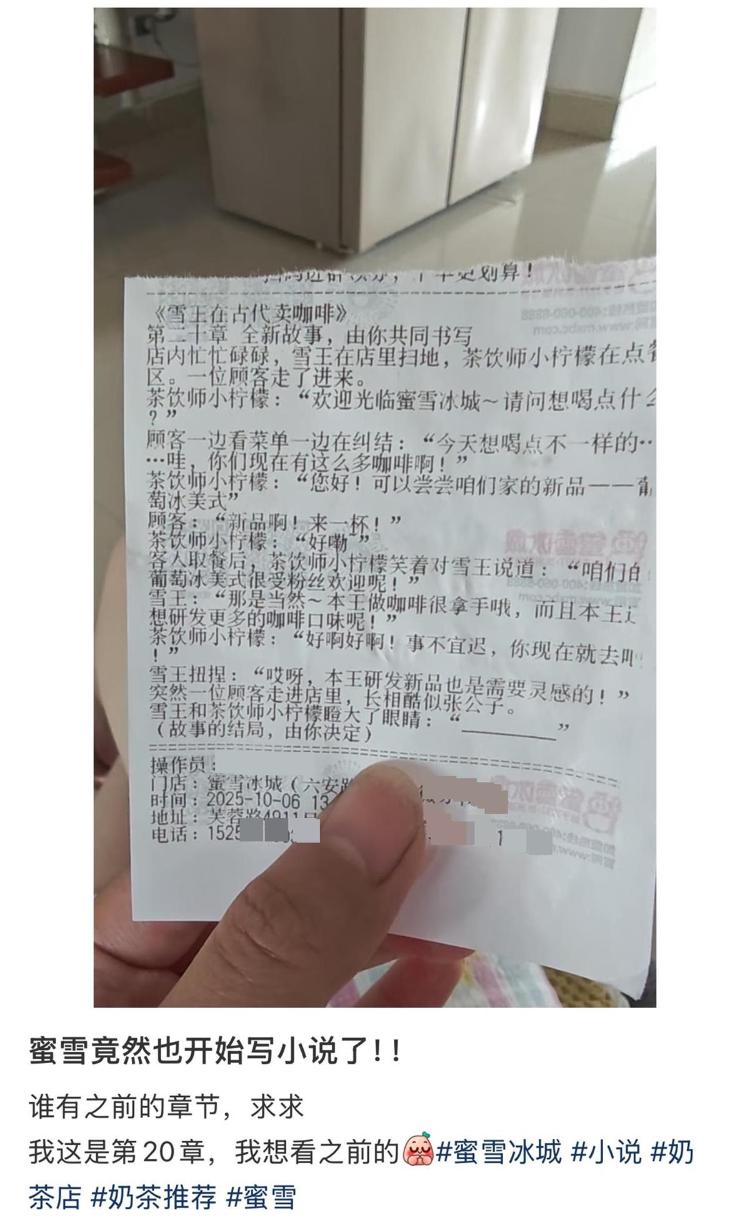 《雪王在古代卖咖啡》
第二十章 全新故事，由你共同书写
店内忙忙碌碌，雪王在店里扫地，茶饮师小柠檬在点
区。一位顾客走了进来。
茶饮师小柠檬：“欢迎光临蜜雪冰城～请问想喝点什
？”
顾客一边看菜单一边在纠结：“今天想喝点不一样的…
…哇，你们现在有这么多咖啡啊！”
茶饮师小柠檬：“您好！可以尝尝咱们家的新品——
萄冰美式”
顾客：“新品啊！来一杯！”
茶饮师小柠檬：“好嘞~”
客人取餐后，茶饮师小柠檬笑着对雪王说道：“咱们的
葡萄冰美式很受粉丝欢迎呢！”
雪王：“那是当然～本王做咖啡很拿手哦，而且本王
想研发更多的咖啡口味呢！”
茶饮师小柠檬：“好啊好啊！事不宜迟，你现在就去
！”
雪王扭捏：“哎呀，本王研发新品也是需要灵感的！”
突然一位顾客走进店里，长相酷似张公子。
雪王和茶饮师小柠檬瞪大了眼睛：“________”
(故事的结局，由你决定)
操作员：
门店：蜜雪冰城（六安
时间：2025-10-06 13
地址：芙蓉路4911
电话：152
蜜雪竟然也开始写小说了！！
谁有之前的章节，求求
我这是第20章，我想看之前的#蜜雪冰城 #小说 #奶
茶店 #奶茶推荐 #蜜雪